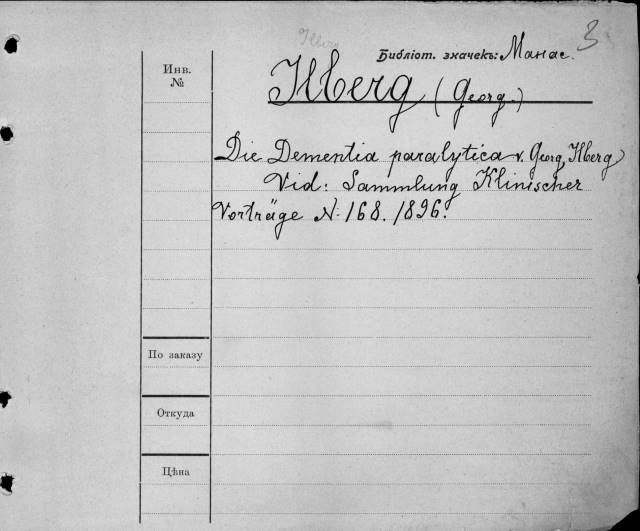 3
Библіот. значекъ: Манас.
Инв.
№
Ilberg (Georg.)
Die Dementia paralytica v. Georg Ilberg
Vid: Sammlung Klinischer
Vorträge N: 168. 1896.
По заказу
Откуда
Цѣна